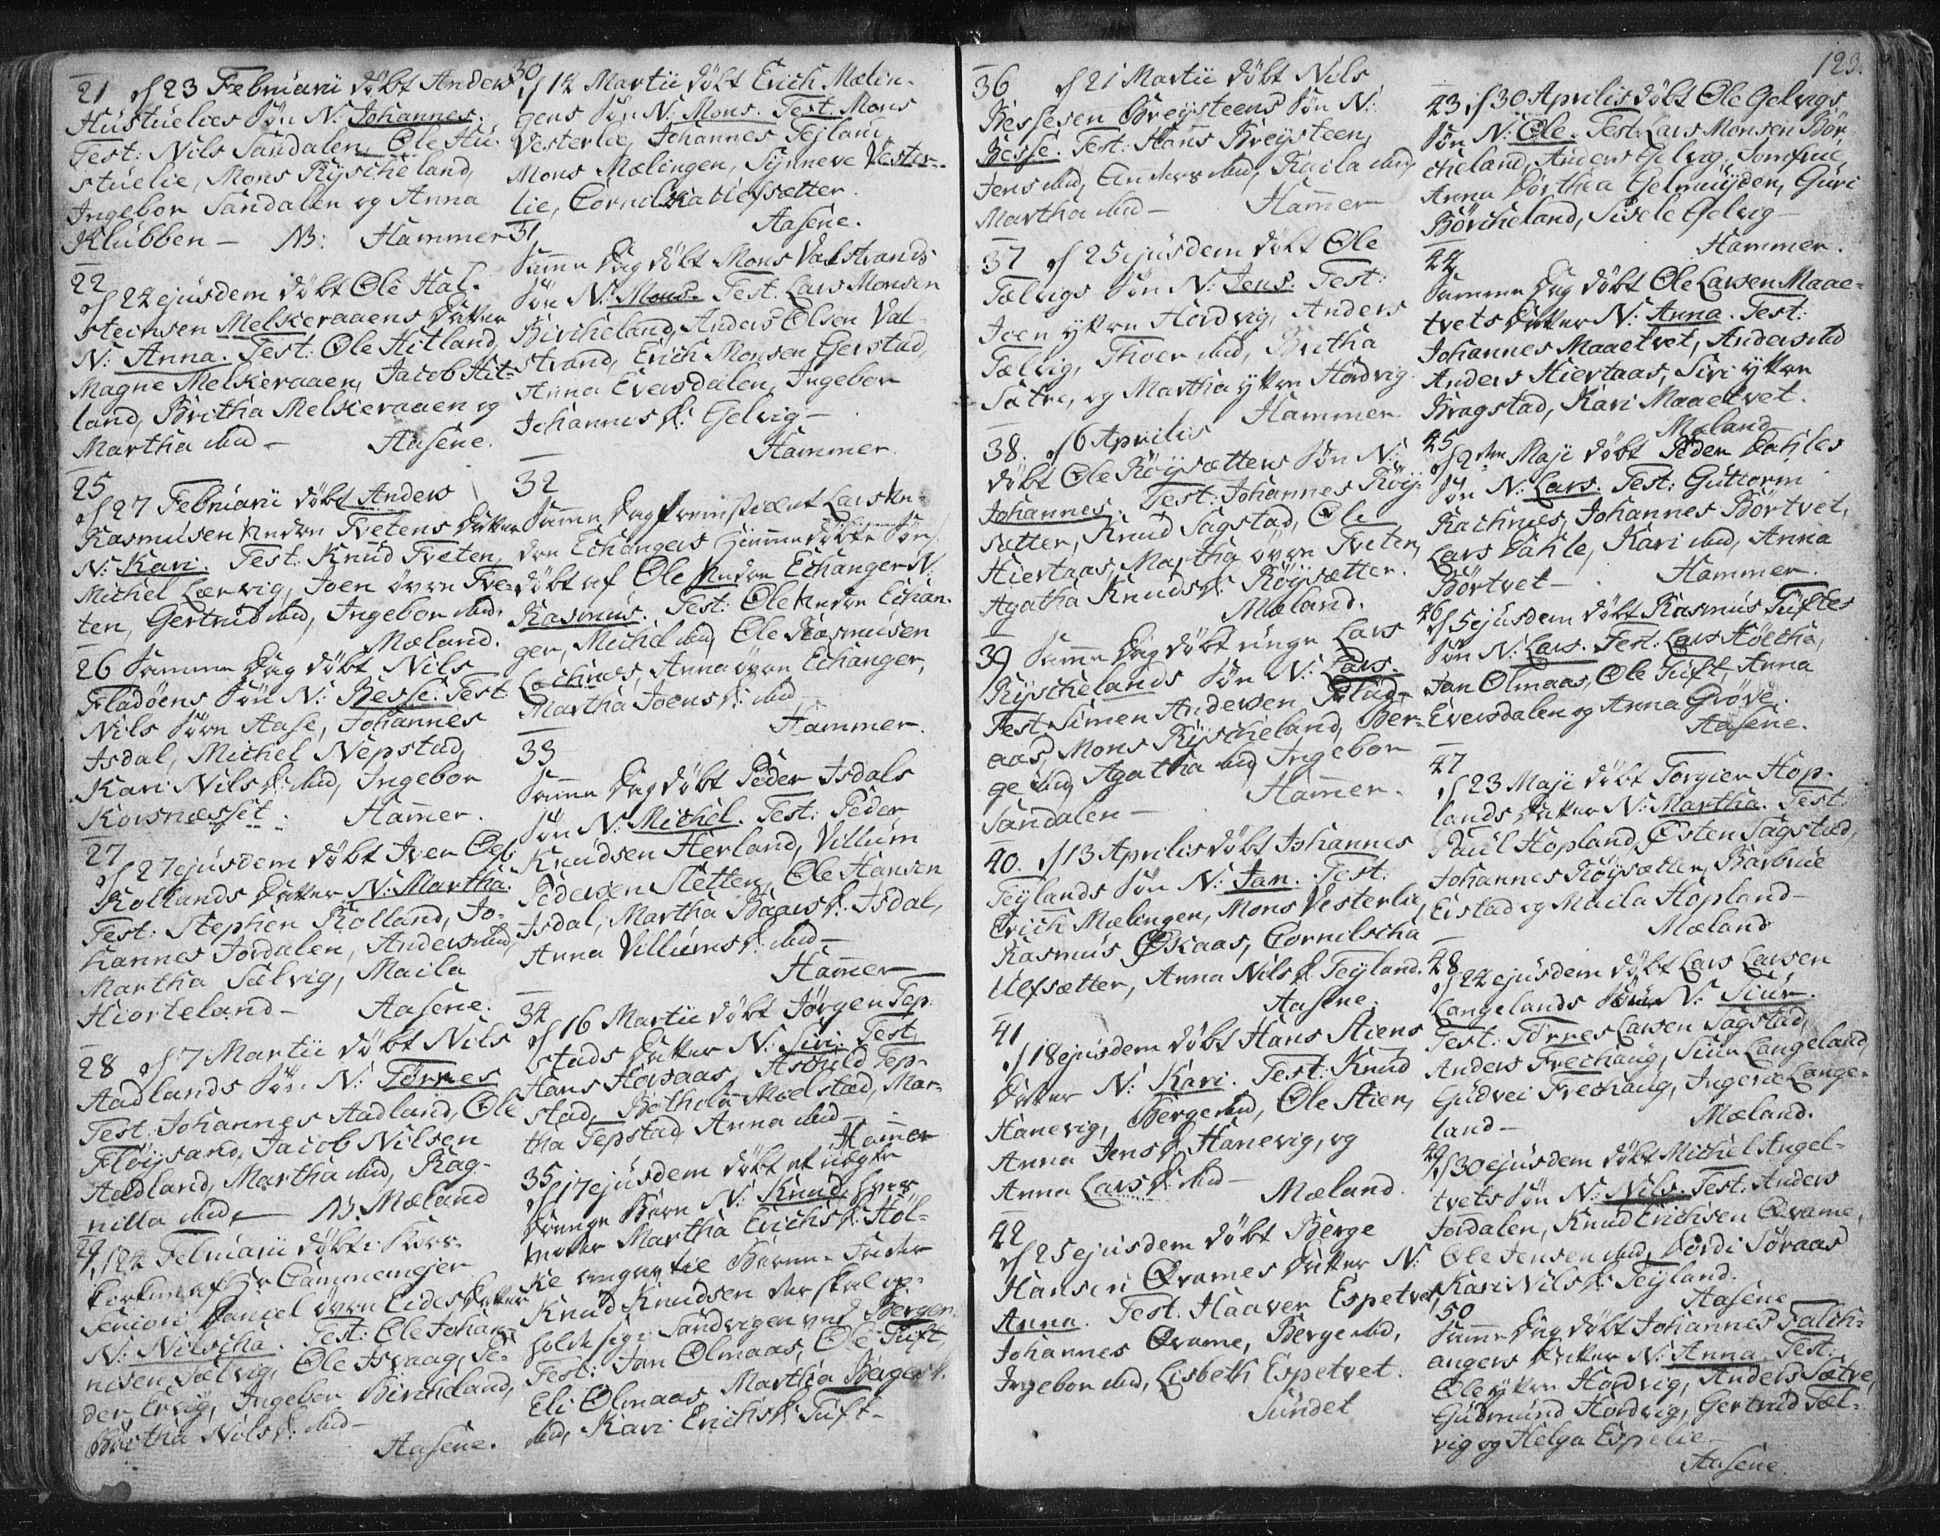 21 d 23 Februarii döbt Anders
Hustuelies Søn N: Johannes.
Test: Nils Sandalen, Ole Hu-
stuelie, Mons Ryscheland,
Ingebor Sandalen og Anna
Klubben — NB: Hammer
22
d 24 ejusdem döbt Ole Hal-
steinsen Melkeraaens Datter
N: Anna. Test: Ole Hitland,
Magne Melkeraaen, Jacob Hit-
land, Britha Melkeraaen og
Martha ibid — Aasene.
25
d 27 Februarii döbt Anders
Rasmusen Tvetens Datter
N: Kari. Test: Knud Tveten,
Michel Lærvig, Joen övre Tve-
ten, Gertrud ibid, Ingebor ibid.
Mæland.
26 Samme Dag döbt Nils
Fladöens Søn N: Besse. Test
Nils Aase, Johannes
Isdal, Michel Nepstad,
Kari Nilsd: ibid, Ingebor
Korsnæsset. Hammer.
27
d 27 ejusdem döbt Iver
Rollands Datter N: Martha.
Test: Stephen Rolland, Jo-
hannes Jordalen, Anders ibid,
Martha Sælvig, Maila
Hiorteland — Aasene.
28 d 7 Martii döbt Nils
Aadlands Søn N: Törres
Test: Johannes Aadland, Ole
Flöysand, Jacob Nilsen
Aadland, Martha ibid, Rag-
nilla ibid — N. Mæland
29
d 24 Februarii döbt i Kors-
kirken af Hr Gammemejer
Seniori Daniel övre Eides Datter
N: Nilscha. Test: Ole Johan-
nisen Sælvig, Ole Isvaag, Pe-
der Ervig, Ingebor Bircheland,
Britha Nilsd: ibid —
Aasene.
30
d 14 Martii döbt Erich Mælin-
gens Søn N: Mons. Test: Mons
Vesterlie, Johannes Tejland,
Mons Mælingen, Synneve Vester-
lie, Cornilscha Ulefsætter.
Aasene.
31
Samme Dag döbt Mons Valstrands
Søn N: Mons. Test: Lars Monsen
Bircheland, Anders Olsen Val-
strand, Erich Monsen Gierstad,
Anna Eversdalen, Ingebor
Johannisd: Gelvig —
Hammer.
32
Samme Dag fremstillet Lars
Echangers hiemmedöbte Søn,
döbt af Ole Echanger N:
Rasmus. Test: Ole Echan-
ger, Michel ibid, Ole Rasmusen
Echnes, Anna övre Echanger,
Martha Joensd: ibid —
Hammer.
33
Samme Dag döbt Peder Isdals
Søn N: Michel. Test: Peder
Knudsen Herland, Villum
Pedersen Sletten, Ole Hansen
Isdal, Martha Baarsd: Isdal,
Anna Villumsd: ibid —
Hammer —
34
d 16 Martii döbt Jørgen Tep-
stads Datter N: Siri. Test
Hans Horsaas, Askild Tep-
stad, Bethola Modstad, Mar-
tha Tepstad, Anna ibid —
Hammer
35
d 17 ejusdem döbt et uægte
Drenge Barn N: Knud, hvis
moder Martha Erichsd: Höl-
ke angav til Barne Fader
Knud Knudsen der skal op-
holde sig i Sandvigen ved Bergen
Test: Jan Olmaas, Ole Tuft,
Eli Olmaas, Martha Bergesd.
ibid, Kari Erichsd: Tuft —
123.
36 d 21 Martii döbt Nils
Bessesen Breysteens Søn N:
Besse. Test: Hans Breysteen,
Jens ibid, Anders ibid, Raila ibid,
Martha ibid — Hammer
37 d 25 ejusdem döbt Ole
Tælvigs Søn N: Jens. Test:
Joen ytre Hordvig, Anders
Tælvig, Thoer ibid, Britha
Sætre, og Martha ytre Hordvig
Hammer.
38. d 6 Aprilis
döbt Ole Röysætters Søn N:
Johannes. Test: Johannes Röy-
sætter, Knud Sagstad, Ole
Hiertaas, Martha övre Tveten,
Agatha Knudsd: Röysætter.
Mæland.
39 Samme Dag döbt unge Lars
Ryschelands Søn N: Lars.
Test: Simen Andersen
aas, Mons Ryscheland, Ber-
ge ibid, Agatha ibid, Ingebor
Sandalen — Hammer.
40. d 13 Aprilis döbt Johannes
Teylands Søn N: Jan. Test:
Erich Mælingen, Mons Vesterlie,
Rasmus Øskaas, Cornilscha
Ulefsætter, Anna Nilsd: Teyland.
Aasene.
41
d 18 ejusdem döbt Hans Stiens
Datter N: Kari. Test: Knud
Hanevig, Berge ibid, Ole Stien,
Anna Jensd: Hanevig, og
Anna Larsd: ibid —
Mæland.
42
d 25 ejusdem döbt Berge
Hansen Qvames Datter N:
Anna. Test: Haaver Espetvet,
Johannes Qvame, Berge ibid,
Ingebor ibid, Lisbeth Espetvet.
Sundet
43 d 30 Aprilis döbt Ole Gelvigs
Søn N: Ole. Test: Lars Monsen Bör-
cheland, Anders Gelvig, Jomfrue
Anna Dorthea Gelmuyden, Guri
Börcheland, Sisele Gelvig —
Hammer.
44
Samme Dag döbt Ole Larsen Maae-
tvets Datter N: Anna. Test:
Johannes Maaetvet, Anders ibid
Anders Hiertaas, Siri ytre
Bragstad, Kari Maaetvet.
Mæland
45
d 2den Maji döbt Peder Dahles
Søn N: Lars. Test: Guttorm
Rachnes, Johannes Börtvet,
Lars Dahle, Kari ibid, Anna
Börtvet — Hammer.
46
d 5 ejusdem döbt Rasmus Tuftes
Søn N: Lars. Test: Lars Höltha,
Jan Olmaas, Ole Tuft, Anna
Eversdalen og Anna Gröve.
Aasene.
47
d 23 Maji döbt Torgier Hop-
lands Datter N: Martha. Test:
Paul Hopland, Østen Sagstad,
Johannes Röysætter, Barbrue
Eistad og Maila Hopland —
Mæland
48
d 24 ejusdem döbt Lars Larsen
Langelands Søn N: Siur.
Test: Törres Larsen Sagstad,
Anders Frechaug, Siur Langeland,
Gudvei Frechaug, Ingerie Lange-
land — Mæland.
49
d 30 ejusdem döbt Michel Angel-
tvets Søn N: Nils. Test: Anders
Jordalen, Knud Erichsen Qvame,
Ole Jensen ibid, Dordi Söraas
Kari Nilsd: Teyland.
Aasene
50
Samme Dag döbt Johannes Salch-
angers Datter N: Anna. Test:
Ole ytre Hordvig, Anders Sætre,
Gudmund Hordvig, Gertrud Tæl-
vig og Helga Espelie —
Aasene